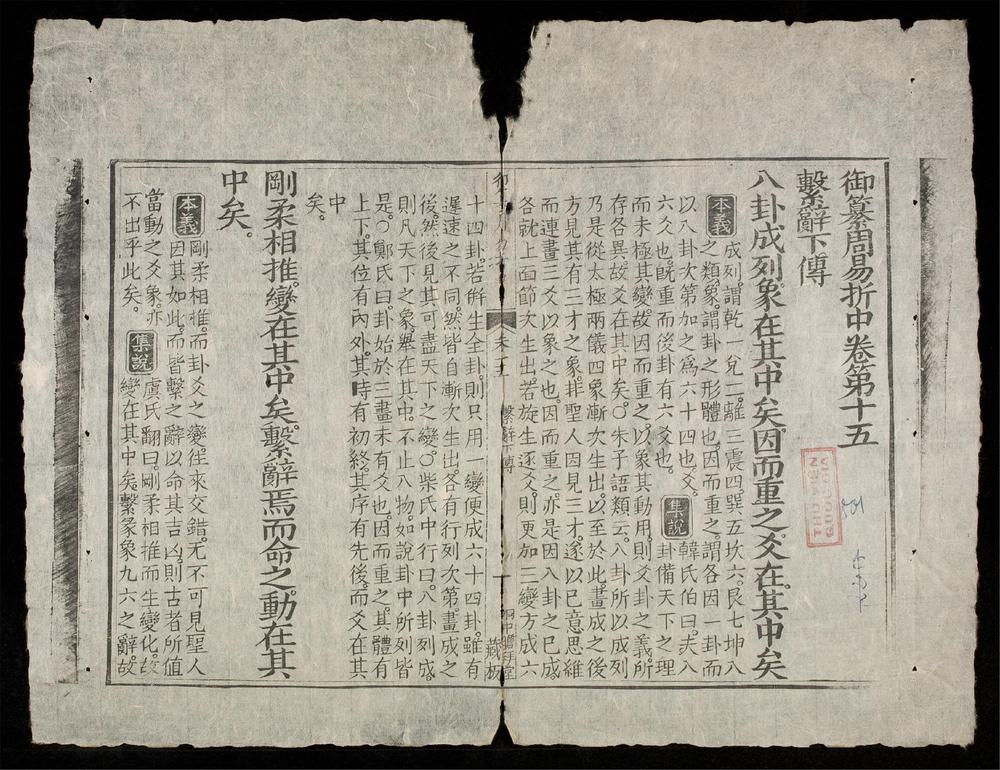 御纂周易折中卷第十五
繫辭下傳
八卦成列。象在其中矣。因而重之。爻在其中矣
本義 成列。謂乾一兌二離三震四巽五坎六艮七坤八
之類。象。謂卦之形體也。因而重之。謂各因一卦而
以八卦次第加之爲六十四也。爻。
六爻也。旣重而後卦有六爻也。 集說 韓氏伯曰。夫八
卦備天下之理
而未極其變。故因而重之。以象其動用。則爻卦之義。所
存各異。故爻在其中矣。○朱子語類云。八卦所以成列
乃是從太極兩儀四象漸次生出。以至於此。畫成之後
方見其有三才之象。非聖人因見三才。遂以己意思維
而連畫三爻以象之也。因而重之。亦是因八卦之已成。
各就上面節次生出。若旋生逐爻。則更加三變方成六
繫辭下傳
藏板
十四卦。若倂生全卦。則只用一變便成六十四卦。雖有
遲速之不同。然皆自漸次生出。各有行列次第。畫成之
後。然後見其可盡天下之變。○柴氏中行曰。八卦列成。
則凡天下之象。舉在其中。不止八物。如說卦中所列皆
是。○鄭氏曰。卦始於三畫。未有爻也。因而重之。其體有
上下。其位有內外。其時有初終。其序有先後。而爻在其
中
矣。
剛柔相推。變在其中矣。繫辭焉而命之。動在其
中矣。
本義 剛柔相推。而卦爻之變。往來交錯。无不可見。聖人
因其如此。而皆繫之辭以命其吉凶。則古者所值
當動之爻象。亦
不出乎此矣。 集說 虞氏翻曰。剛柔相推而生變化。故
變在其中矣。繫彖象九六之辭。故